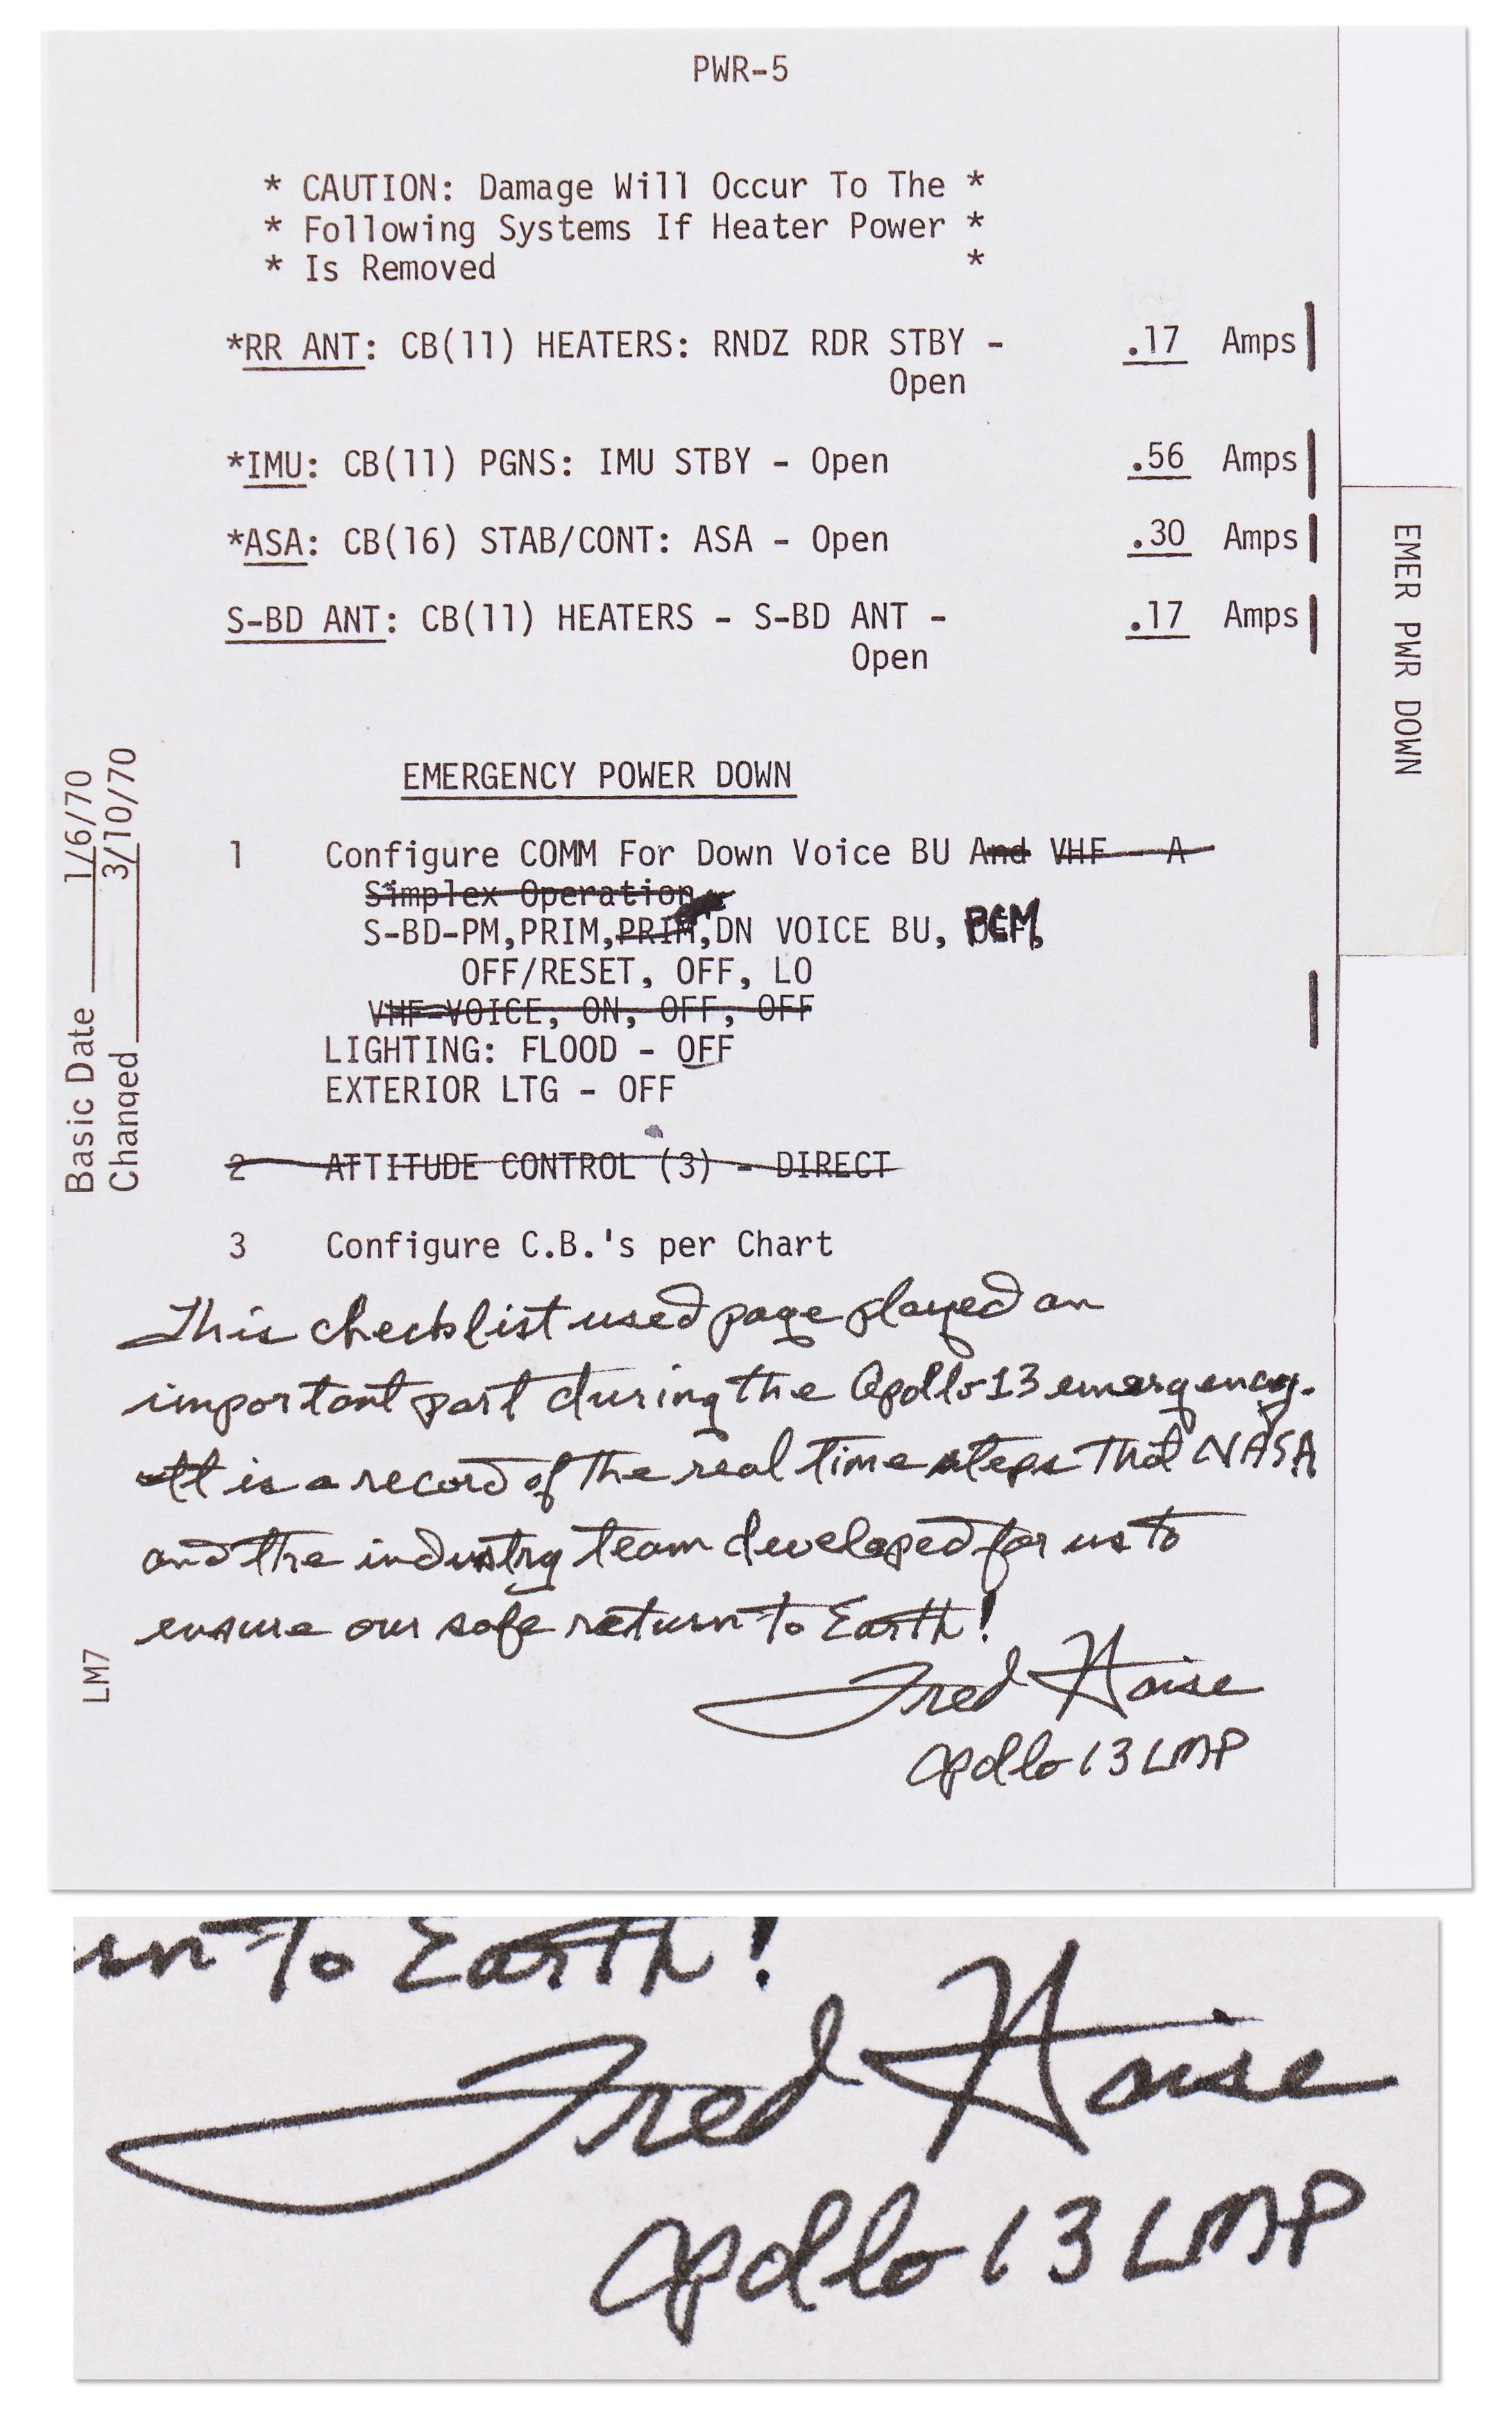 PWR-5
* CAUTION: Damage Will Occur To The *
* Following Systems If Heater Power *
* Is Removed *
*RR ANT: CB(11) HEATERS: RNDZ RDR STBY - .17 Amps
Open
*IMU: CB(11) PGNS: IMU STBY - Open .56 Amps
*ASA: CB(16) STAB/CONT: ASA - Open .30 Amps
S-BD ANT: CB(11) HEATERS - S-BD ANT - .17 Amps
Open
EMER PWR DOWN
EMERGENCY POWER DOWN
1 Configure COMM For Down Voice BU And VHF A
Simplex Operation
S-BD-PM,PRIM,PRIM,DN VOICE BU, PCM,
OFF/RESET, OFF, LO
VHF-VOICE, ON, OFF, OFF
LIGHTING: FLOOD - OFF
EXTERIOR LTG - OFF
2 ATTITUDE CONTROL (3) - DIRECT
3 Configure C.B.'s per Chart
Basic Date 1/6/70
Changed 3/10/70
This checklist used page played an
important part during the Apollo 13 emergency.
It is a record of the real time steps that NASA
and the industry team developed for us to
ensure our safe return to Earth!
Fred Haise
Apollo 13 LMP
LM7
urn to Earth!
Fred Haise
Apollo 13 LMP